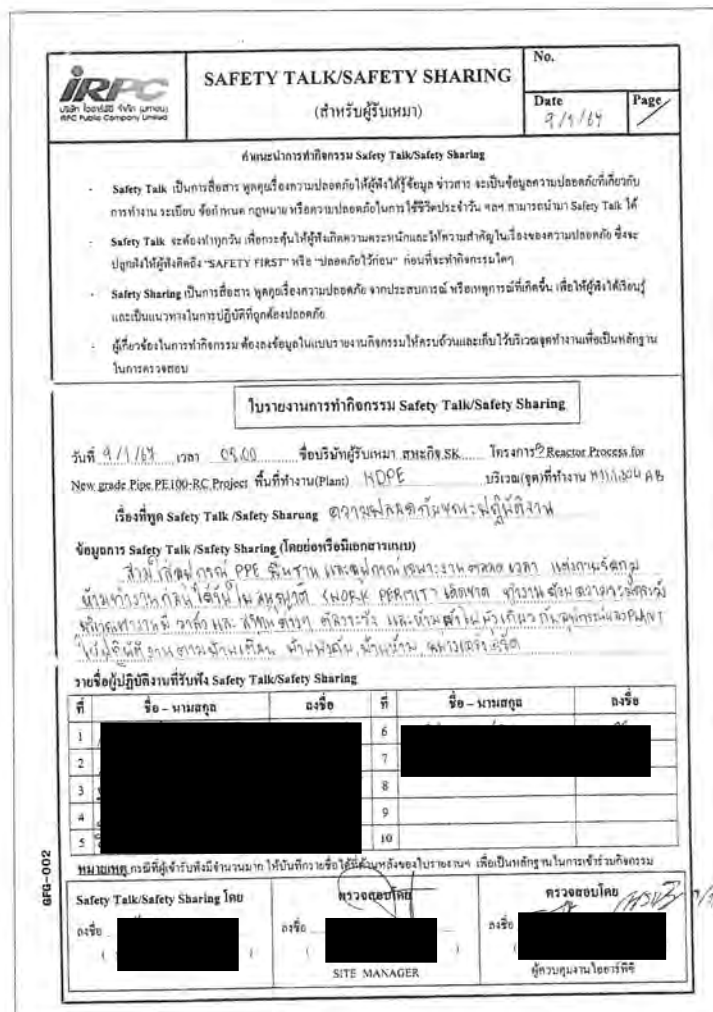 iRPC
บริษัท ไออาร์พีซี จำกัด (มหาชน)
IRPC Public Company Limited
SAFETY TALK/SAFETY SHARING
(สำหรับผู้รับเหมา)
No.
Date
9/1/67
Page
คำแนะนำการทำกิจกรรม Safety Talk/Safety Sharing
- Safety Talk เป็นการสื่อสาร พูดคุยเรื่องความปลอดภัยให้ผู้ฟังได้รู้ข้อมูล ข่าวสาร จะเป็นข้อมูลความปลอดภัยที่เกี่ยวกับ
การทำงาน ระเบียบ ข้อกำหนด กฎหมาย หรือความปลอดภัยในการใช้ชีวิตประจำวัน ฯลฯ สามารถนำมา Safety Talk ได้
- Safety Talk จะต้องทำทุกวัน เพื่อกระตุ้นให้ผู้ฟังเกิดความตระหนักและให้ความสำคัญในเรื่องของความปลอดภัย ซึ่งจะ
ปลูกฝังให้ผู้ฟังคิดถึง "SAFETY FIRST" หรือ "ปลอดภัยไว้ก่อน" ก่อนที่จะทำกิจกรรมใดๆ
- Safety Sharing เป็นการสื่อสาร พูดคุยเรื่องความปลอดภัย จากประสบการณ์ หรือเหตุการณ์ที่เกิดขึ้น เพื่อให้ผู้ฟังได้เรียนรู้
และเป็นแนวทางในการปฏิบัติที่ถูกต้องปลอดภัย
- ผู้เกี่ยวข้องในการทำกิจกรรม ต้องลงข้อมูลในแบบรายงานกิจกรรมให้ครบถ้วนและเก็บไว้บริเวณจุดทำงานเพื่อเป็นหลักฐาน
ในการตรวจสอบ
ใบรายงานการทำกิจกรรม Safety Talk/Safety Sharing
วันที่ 9/1/67 เวลา 08.00 ชื่อบริษัทผู้รับเหมา สหะกิจ.SK โครงการ Reactor Process for
New grade Pipe PE100-RC Project พื้นที่ทำงาน(Plant) HDPE บริเวณ(จุด)ที่ทำงาน
เรื่องที่พูด Safety Talk /Safety Sharung ความปลอดภัยขณะปฏิบัติงาน
ข้อมูลการ Safety Talk /Safety Sharing (โดยย่อหรือมีเอกสารแนบ)
สวมใส่อุปกรณ์ PPE พื้นฐาน และอุปกรณ์เฉพาะงานตลอดเวลา แต่งกายรัดกุม
ห้ามทำงานก่อนได้รับใบอนุญาต (WORK PERMIT) เด็ดขาด ทำงานด้วยความระมัดระวัง
และ PLANT
ให้ปฏิบัติงานตามป้ายเตือน ป้ายบังคับ ป้ายห้าม
รายชื่อผู้ปฏิบัติงานที่รับฟัง Safety Talk/Safety Sharing
ที่ ชื่อ – นามสกุล ลงชื่อ ที่ ชื่อ – นามสกุล ลงชื่อ
1 6
2 7
3 8
4 9
5 10
หมายเหตุ กรณีที่ผู้เข้ารับฟังมีจำนวนมาก ให้บันทึกรายชื่อได้ที่ด้านหลังของใบรายงานฯ เพื่อเป็นหลักฐานในการเข้าร่วมกิจกรรม
GFG-002
Safety Talk/Safety Sharing โดย ตรวจสอบโดย ตรวจสอบโดย
ลงชื่อ ลงชื่อ ลงชื่อ
SITE MANAGER ผู้ควบคุมงานไออาร์พีซี